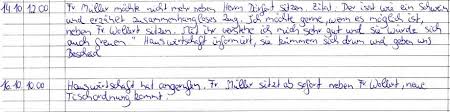 14.10 12.00 Fr Müller möchte nicht mehr neben Herrn Dörfert sitzen. Zitat: Der isst wie ein Schwein
und erzählt zusammenhangloses Zeug. Ich möchte gerne, wenn es möglich ist,
neben Fr Wollert sitzen. Mit ihr verstehe ich mich sehr gut und sie würde sich
auch freuen" Hauswirtschaft informiert, sie kümmern sich drum und geben uns
Bescheid
16.10 10.00 Hauswirtschaft hat angerufen. Fr Müller sitzt ab sofort neben Fr Wollert, neue
Tischordnung kommt.